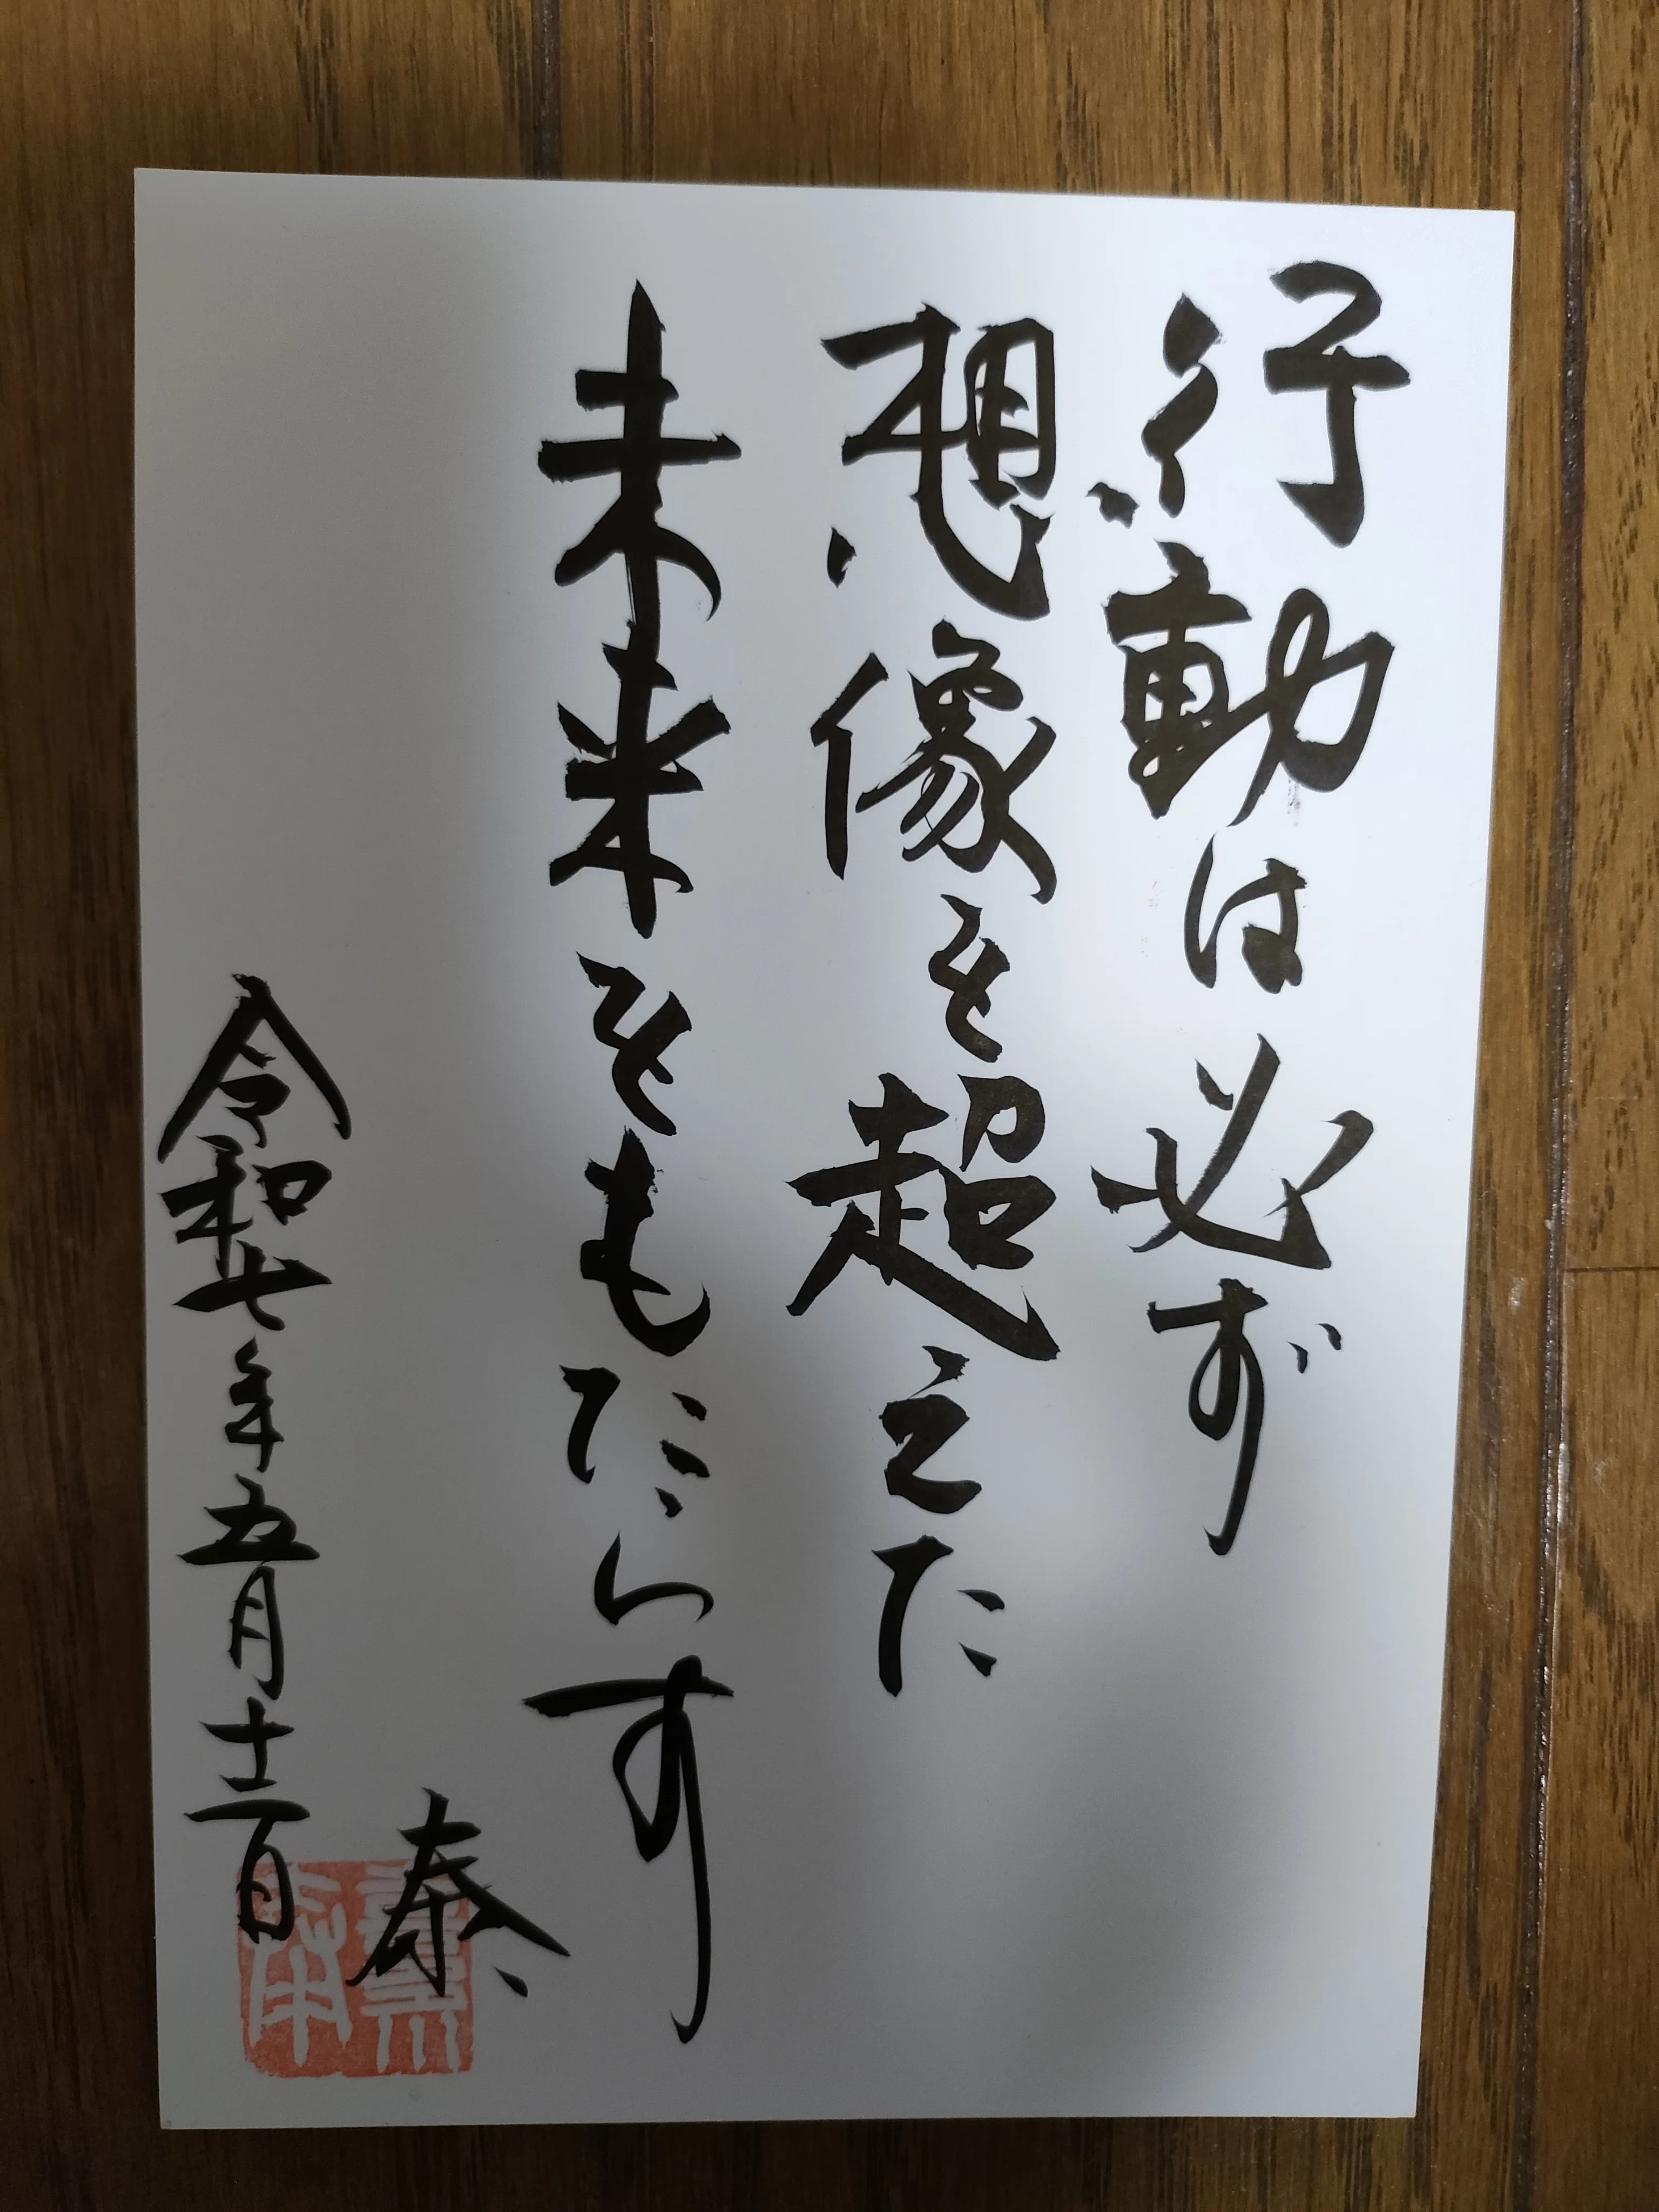 行動は必ず
想像を超えた
未来をもたらす
令和七年五月十二日